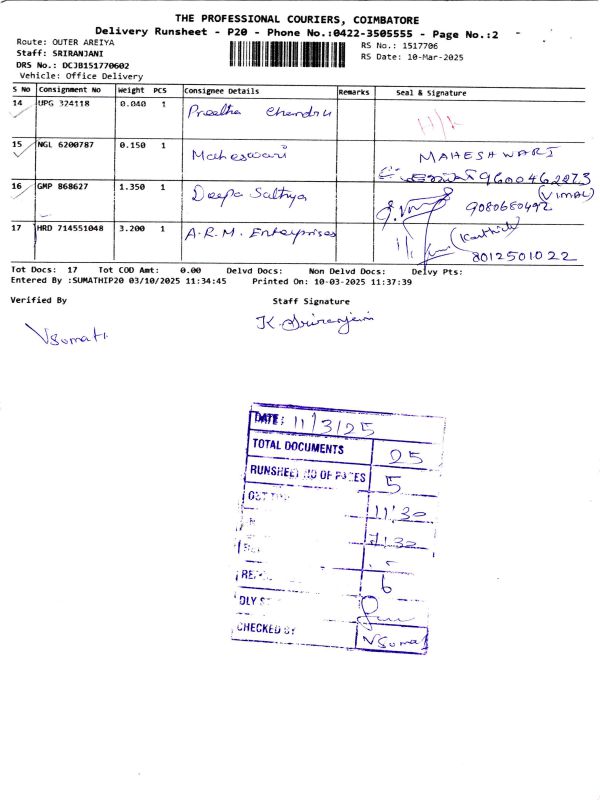 THE PROFESSIONAL COURIERS, COIMBATORE
Delivery Runsheet - P20 - Phone No.:0422-3505555 - Page No.:2
Route: OUTER AREIYA
Staff: SRIRANJANI
RS No.: 1517706
DRS No.: DCJB151770602
RS Date: 10-Mar-2025
Vehicle: Office Delivery
S No Consignment No Weight PCS Consignee Details Remarks Seal & Signature
14 UPG 324118 0.040 1 Preetha Chandru
15 NGL 6200787 0.150 1 Maheswari MAHESHWARI
9600462273
16 GMP 868627 1.350 1 Deepa Sathya (VIMAL)
9080680492
17 HRD 714551048 3.200 1 A.R.M. Enterprises (Karthick)
8012501022
Tot Docs: 17 Tot COD Amt: 0.00 Delvd Docs: Non Delvd Docs: Delvy Pts:
Entered By :SUMATHIP20 03/10/2025 11:34:45 Printed On: 10-03-2025 11:37:39
Verified By Staff Signature
VSumati K. Sriranjani
DATE: 11/3/25
TOTAL DOCUMENTS 25
RUNSHEET NO OF PAGES 5
11:30
7:30
6
DLY
CHECKED BY VSumati